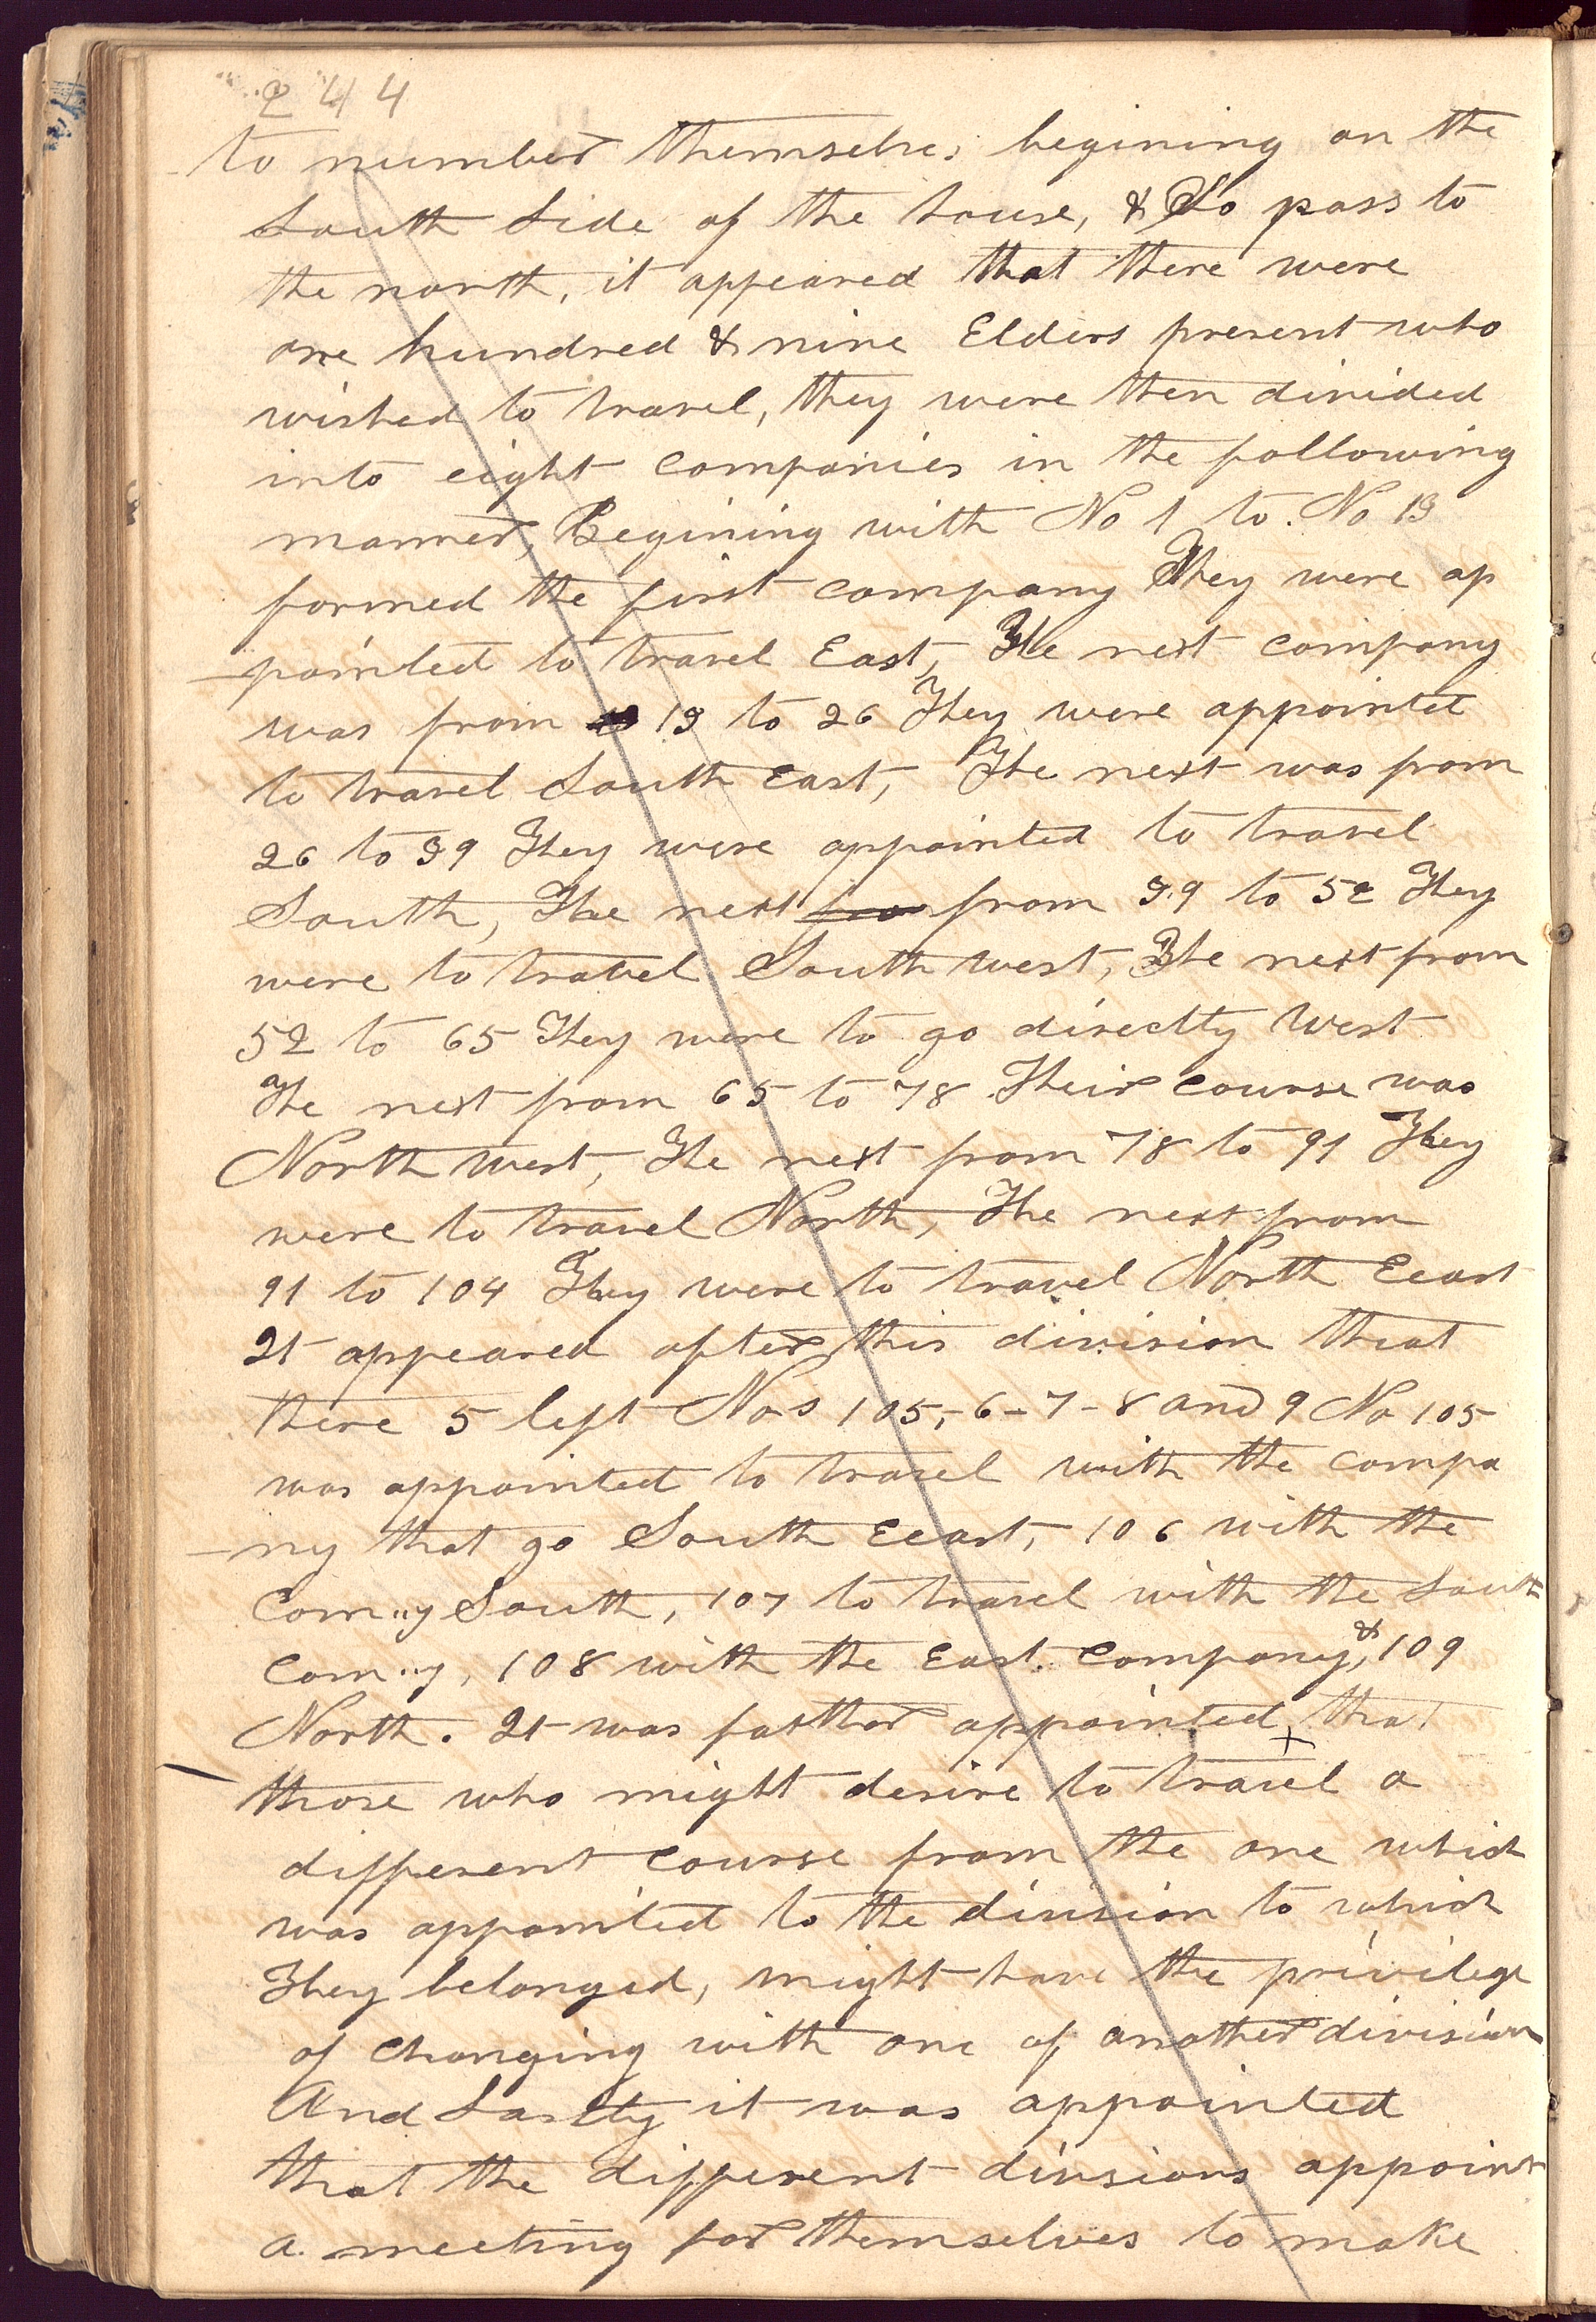 244
to number themselves begining on the
South Side of the house, & So pass to
the north, it appeared that there were
one hundred & nine Elders present who
wished to travel, they were then divided
into eight companies in the following
manner, Begining with No 1 to. No 13
formed the first company They were ap
pointed to travel East, The next company
was from 13 to 26 They were appointed
to travel South East, The next was from
26 to 39 They were appointed to travel
South, The next from from 39 to 52 They
were to travel South west, The next from
52 to 65 They were to go directly West
The next from 65 to 78 Their course was
North west, The next from 78 to 91 They
were to travel North, The next from
91 to 104 They were to travel North Eeast
It appeared after this division that
there 5 left Nos 105,-6-7-8 and 9 No 105
was appointed to travel with the compa
ny that go South Eeast, 106 with the
Com..y South, 107 to travel with the South
Com..y, 108 with the East. Company, & 109
North. It was farther appointed, that
those who might desire to travel a
different course from the one which
was appointed to the division to which
They belonged, might have the privilege
of changing with one of another division
And Lastly it was appointed
that the different divisions appoint
a meeting for themselves to make